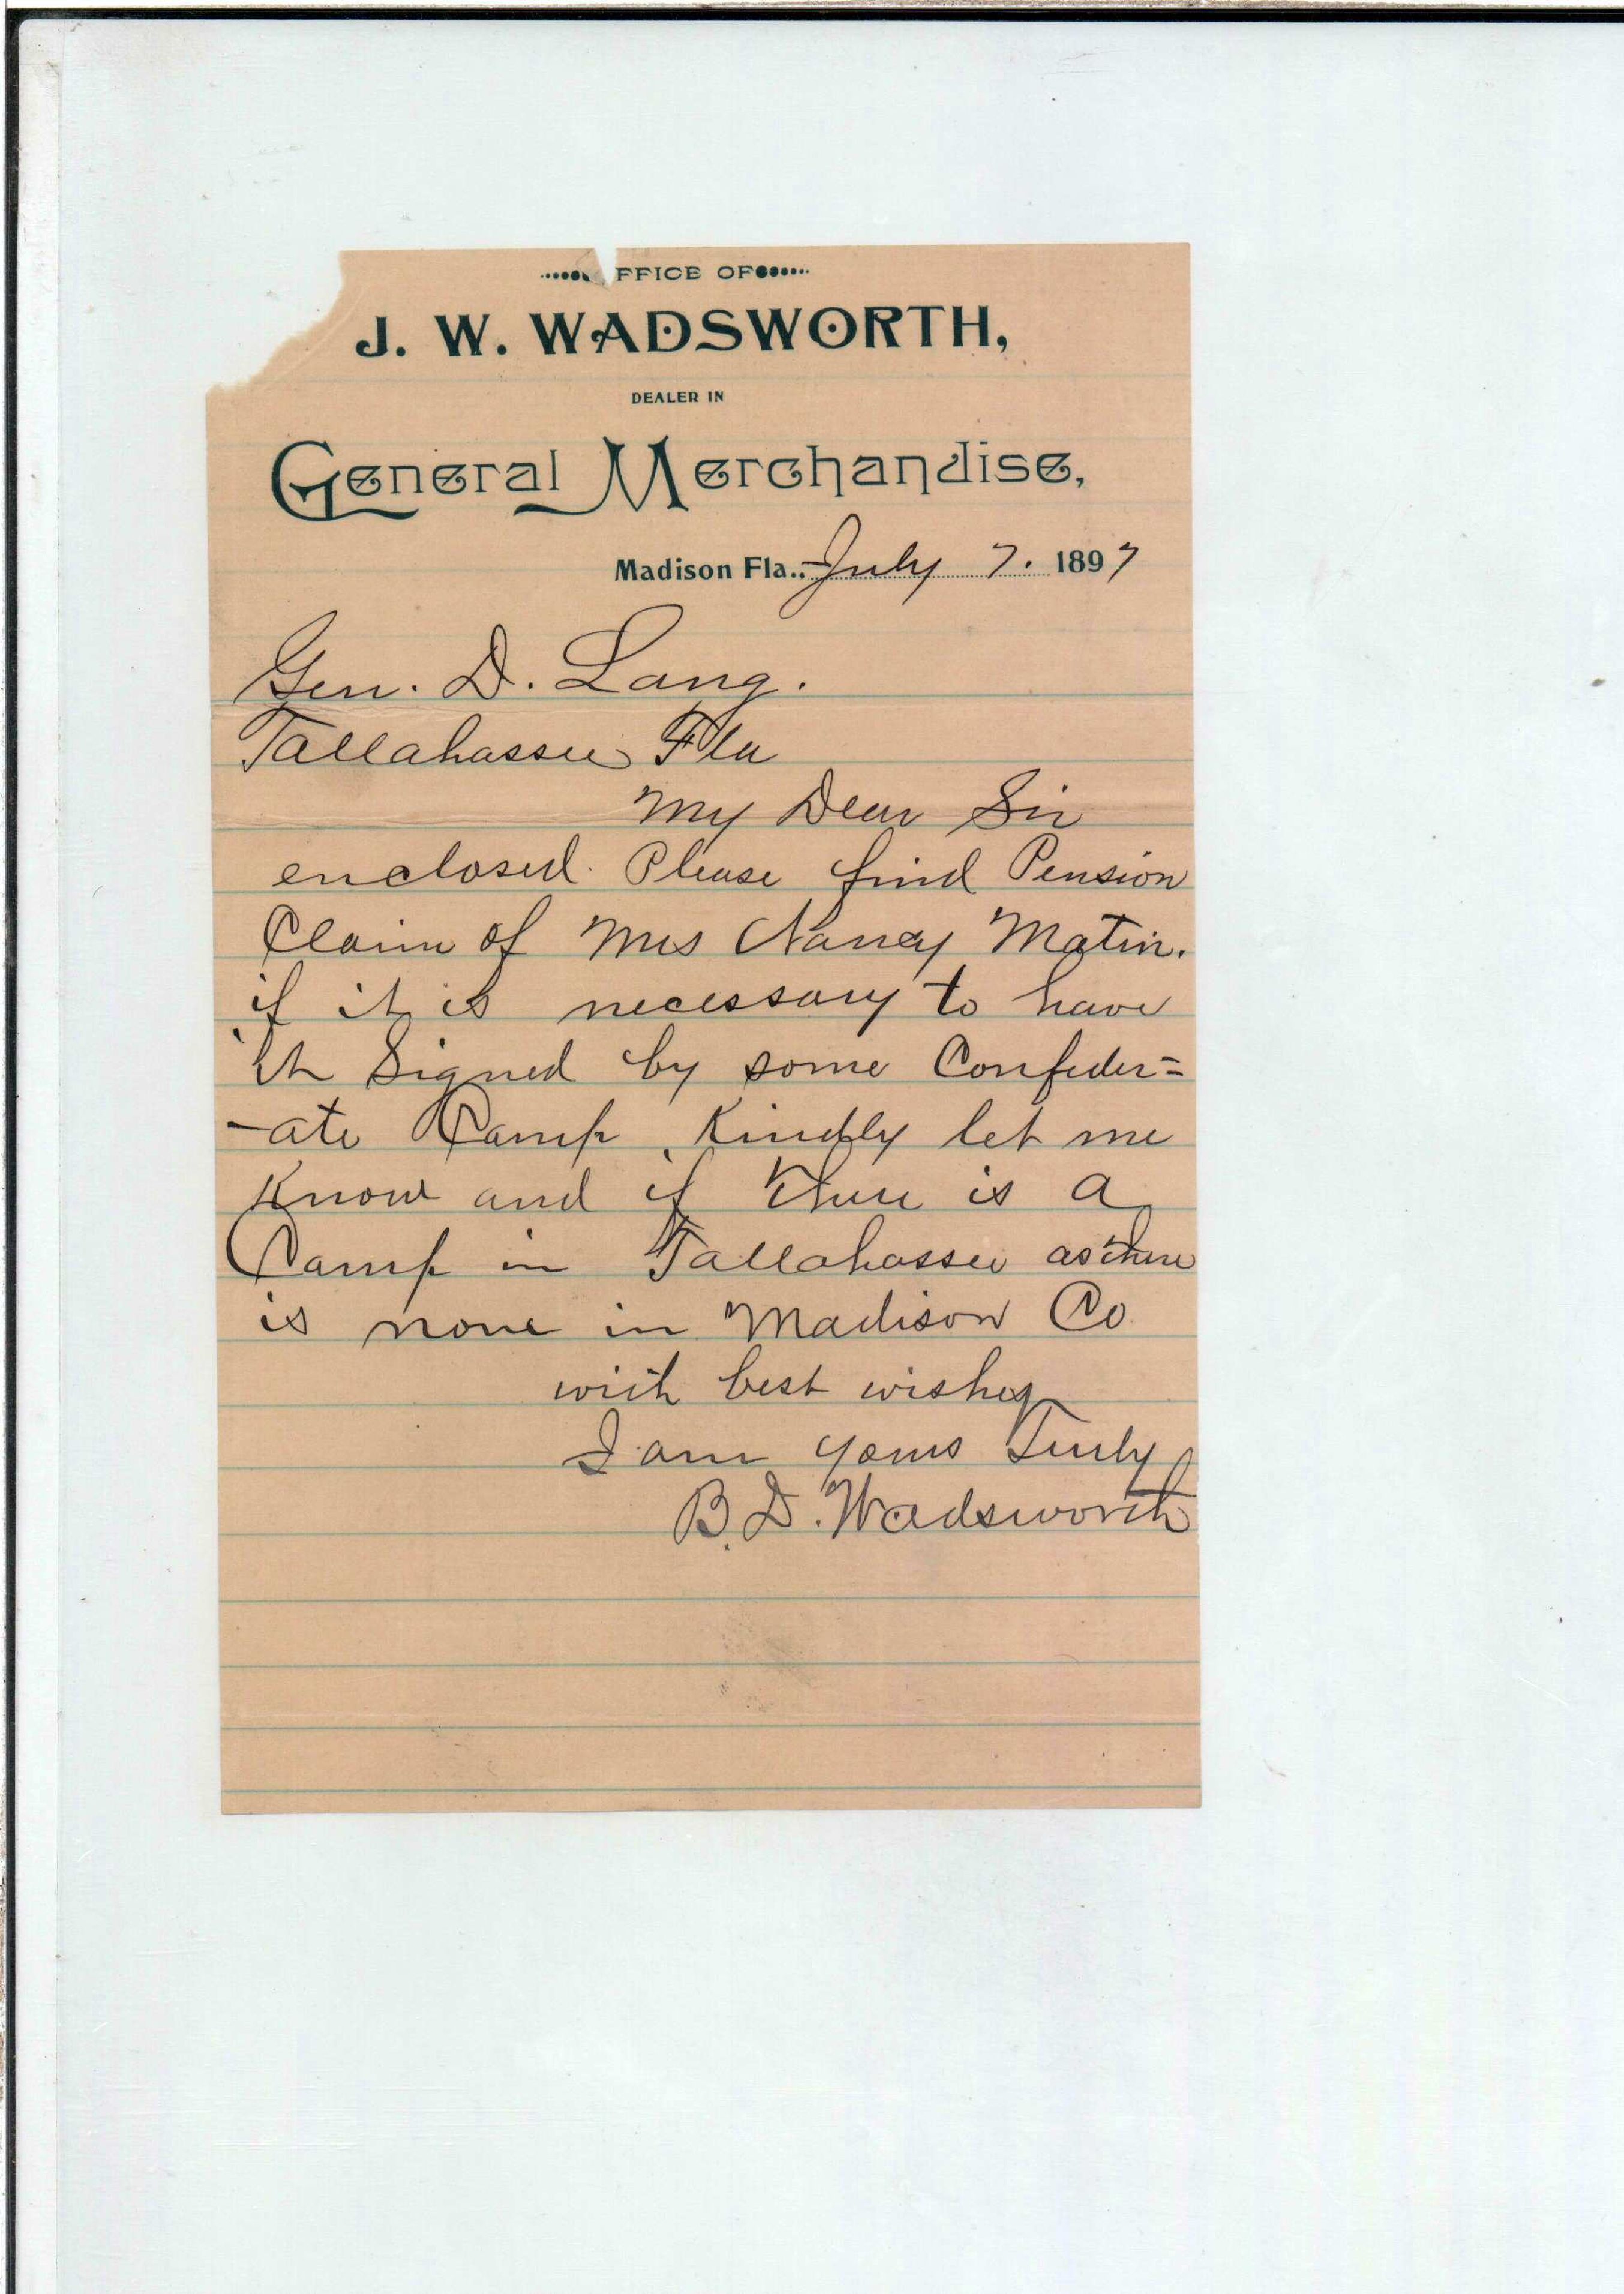 FFICE OF
J. W. WADSWORTH,
DEALER IN
General Merchandise,
Madison Fla., July 7. 1897
Gen. D. Lang.
Tallahassee Fla
My Dear Sir
enclosed. Please find Pension
Claim of Mrs Nancy Matin.
if it is necessary to have
it Signed by some Confeder=
-ate Camp, Kindly let me
Know and if there is a
Camp in Tallahassee as there
is none in Madison Co
with best wishes
I am yours Truly
B. D. Wadsworth